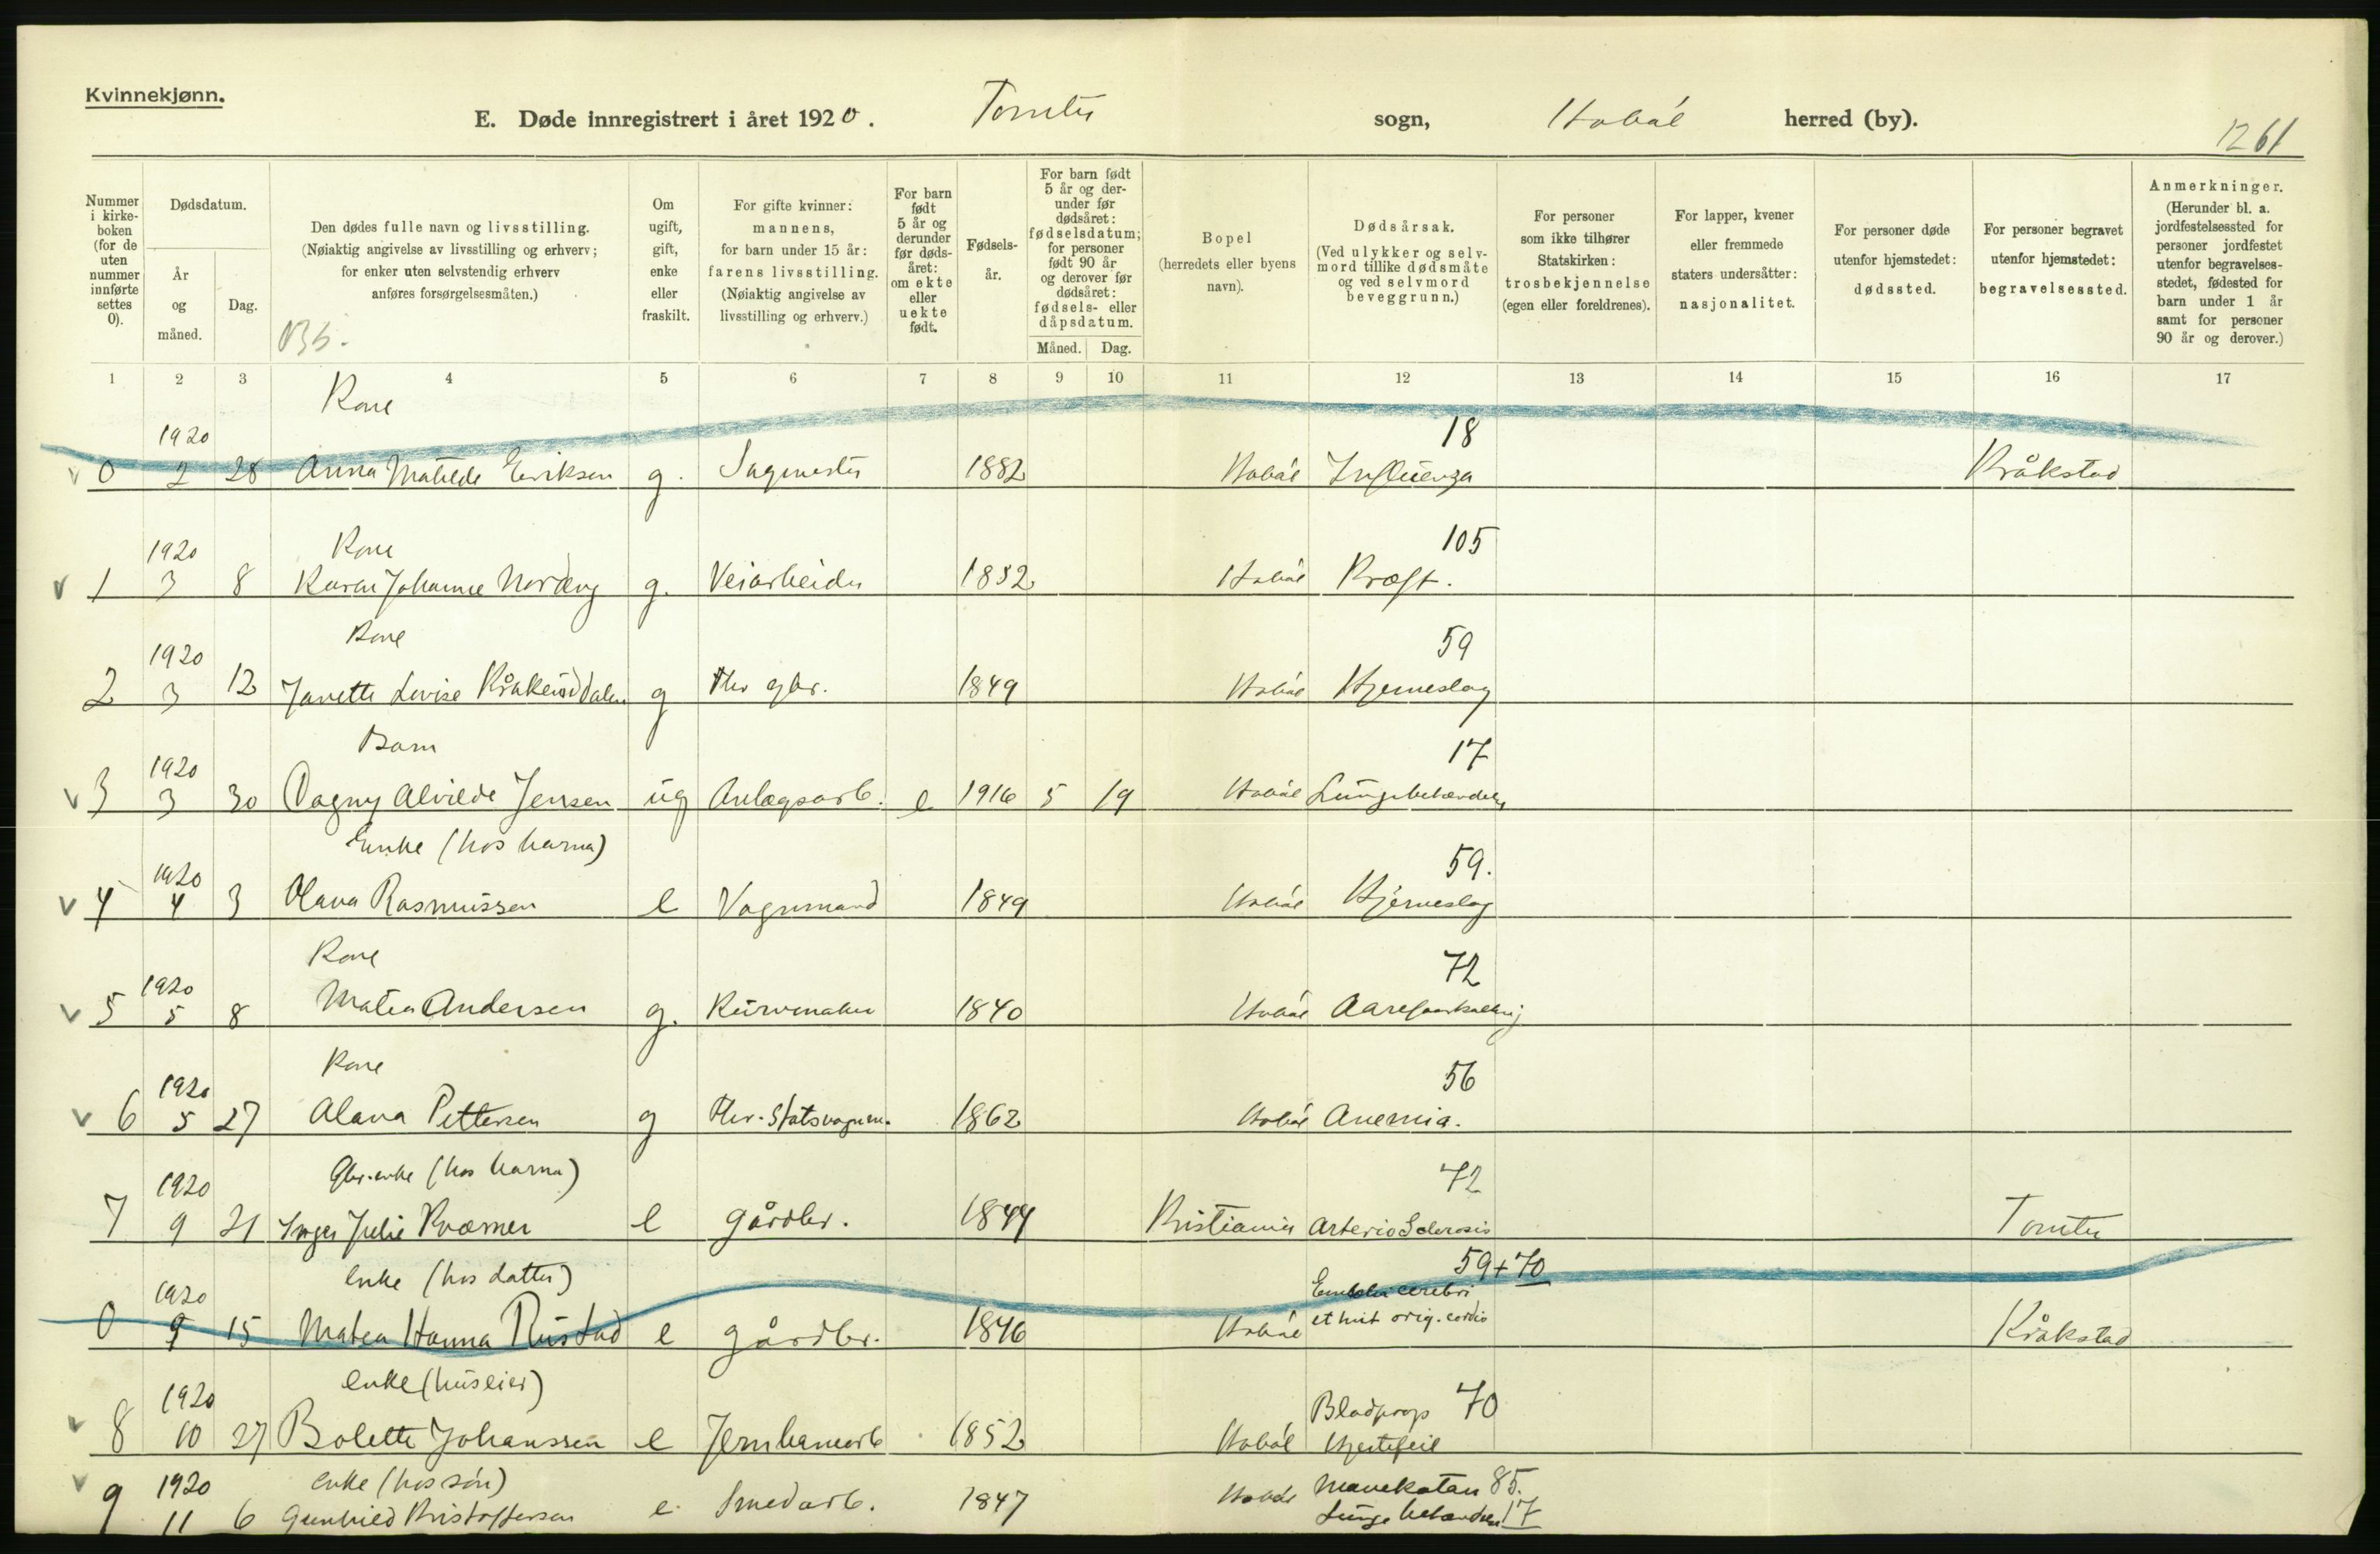 Kvinnekjønn.
E. Døde innregistrert i året 1920. Tomter sogn, Hobøl herred (by).
1261
Nummer i kirkeboken (for de uten nummer innførte settes 0).
Dødsdatum.
År og måned.
Dag.
Den dødes fulle navn og livsstilling.
(Nøiaktig angivelse av livsstilling og erhverv; for enker uten selvstendig erhverv anføres forsørgelsesmåten.)
Om ugift, gift, enke eller fraskilt.
For gifte kvinner: mannens, for barn under 15 år: farens livsstilling.
(Nøiaktig angivelse av livsstilling og erhverv.)
For barn født 5 år og derunder før dødsåret: om ekte eller uekte født.
Fødselsår.
For barn født 5 år og derunder før dødsåret: fødselsdatum; for personer født 90 år og derover før dødsåret: fødsels- eller dåpsdatum.
Måned. Dag.
Bopel (herredets eller byens navn).
Dødsårsak.
(Ved ulykker og selvmord tillike dødsmåte og ved selvmord beveggrunn.)
For personer som ikke tilhører Statskirken: trosbekjennelse (egen eller foreldrenes).
For lapper, kvener eller fremmede staters undersåtter: nasjonalitet.
For personer døde utenfor hjemstedet: dødssted.
For personer begravet utenfor hjemstedet: begravelsessted.
Anmerkninger.
(Herunder bl. a. jordfestelsessted for personer jordfestet utenfor begravelsesstedet, fødested for barn under 1 år samt for personer 90 år og derover.)
1 2 3 4 5 6 7 8 9 10 11 12 13 14 15 16 17
1920 Kone 18
0 2 28 Anna Matilde Eriksen g. Sagmester 1882 Hobøl Influenza Kråkstad
1920 Kone 105
1 3 8 Karen Johanne Nordeng g. Veiarbeider 1852 Hobøl Kræft.
1920 Kone 59
2 3 12 Janette Lovise g fhv gbr. 1849 Hobøl Hjerneslag
1920 Barn 17
3 3 30 Dagny Alvilde Jensen ug Anlægsarb. e 1916 5 19 Hobøl Lungebetændelse
1920 Enke (hos barna) 59.
4 4 3 Olava Rasmussen e Vognmand 1849 Hobøl Hjerneslag
1920 Kone 72
5 5 8 Matea Andersen g. Kurvmaker 1840 Hobøl Aareforkalkning
1920 Kone 56
6 5 27 Alava Pettersen g fhv. Statsvognm. 1862 Hobøl Anemia.
1920 Gbr.enke (hos barna) 72
7 9 21 Inger Julie Kværner e gårdbr. 1844 Kristiania Arterio Sclerosis Tomter
1920 Enke (hos datter) 59+70
0 9 15 Matea Hanna Rustad e gårdbr. 1846 Hobøl Emboli cerebri orig. cordis Kråkstad
1920 Enke (huseier) 70
8 10 27 Bolette Johanssen e Jernbanearb 1852 Hobøl Blodprop Hjertefeil
1920 Enke (hos søn) 85.
9 11 6 Gunhild Kristoffersen e. Smedarb. 1847 Hobøl Mavekatar Lungebetændelse 17